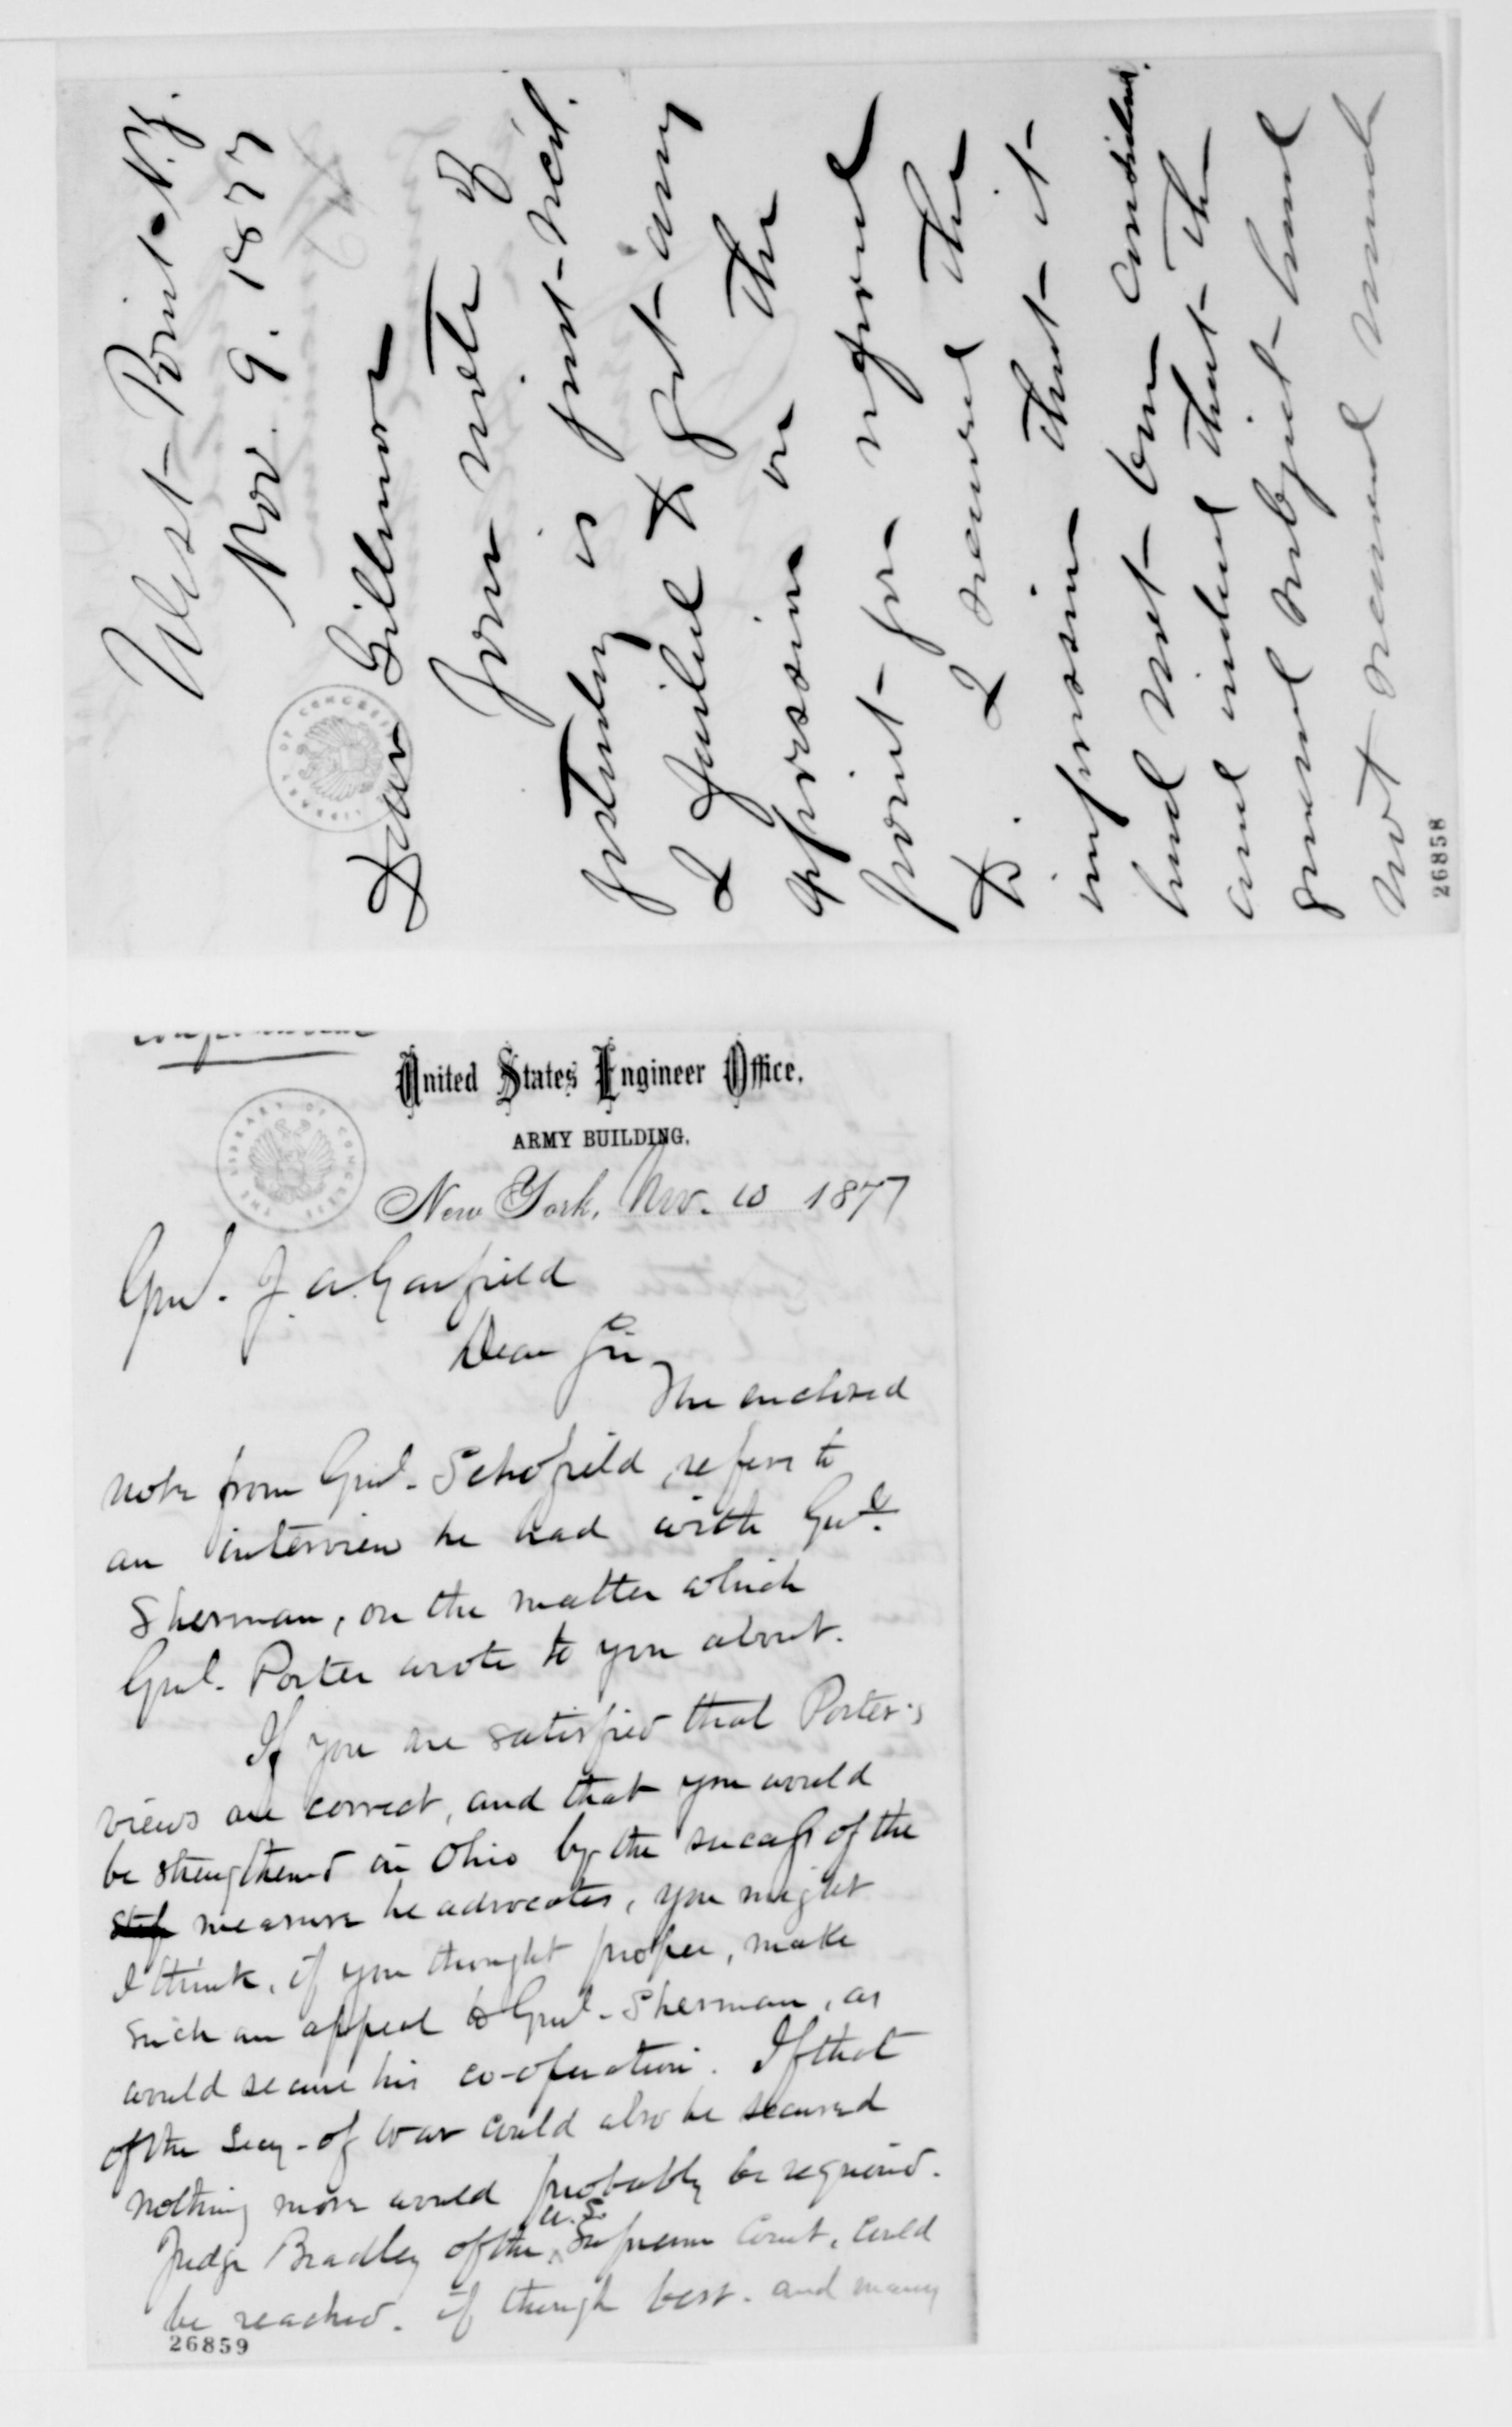 West-Point N.Y.
Nov. 9. 1877
Dear Gillmore
Your note of
yesterday is just recd.
I failed to get any
expression on the
point you referred
to. I received the
impression that it
had not been considered
and indeed that the
general subject had
not received much
26858
United States Engineer Office,
ARMY BUILDING.
New York, Nov. 10 1877
Genl. J. A. Garfield
Dear Sir
The enclosed
note from Genl. Schofield, refers to
an interview he had with Genl.
Sherman, on the matter which
Genl. Porter wrote to you about.
If you are satisfied that Porter's
views are correct, and that you would
be strengthened in Ohio by the success of the
step measure he advocates, you might
I think, if you thought proper, make
such an appeal to Genl. Sherman, as
would secure his co-operation. If that
of the Secy. of War could also be secured
nothing more would probably be required.
Judge Bradley of the U.S. Supreme Court, could
be reached. if though best. and many
26859
THE LIBRARY OF CONGRESS